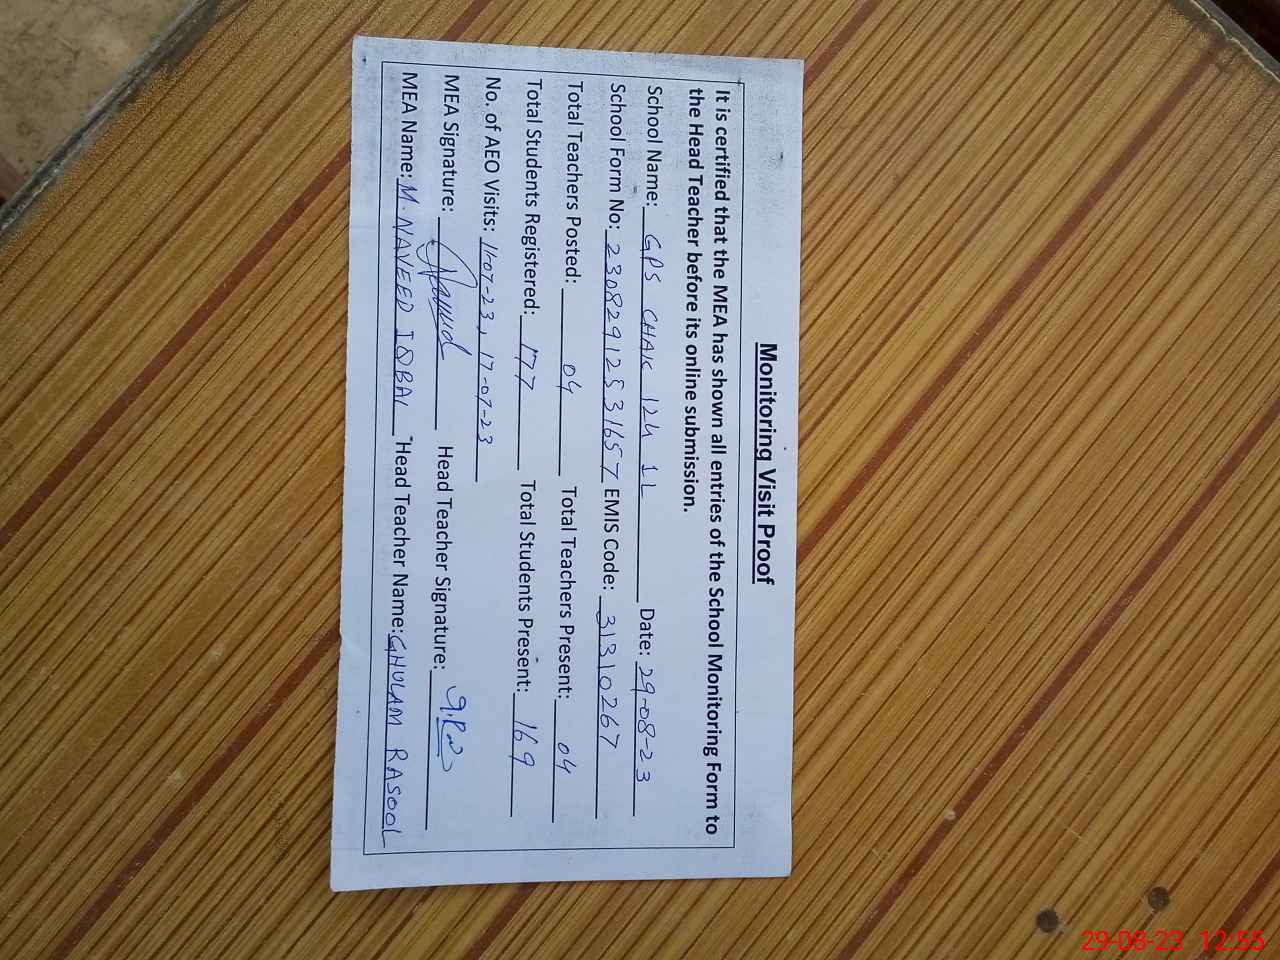 Monitoring Visit Proof
It is certified that the MEA has shown all entries of the School Monitoring Form to
the Head Teacher before its online submission.
School Name: GPS CHAK 124 1L Date: 29-08-23
School Form No: 23082912531657 EMIS Code: 31310267
Total Teachers Posted: 04 Total Teachers Present: 04
Total Students Registered: 177 Total Students Present: 169
No. of AEO Visits: 11-07-23, 17-07-23
MEA Signature: Head Teacher Signature:
MEA Name: M. NAVEED IQBAL Head Teacher Name: GHULAM RASOOL
29-08-23 12:55